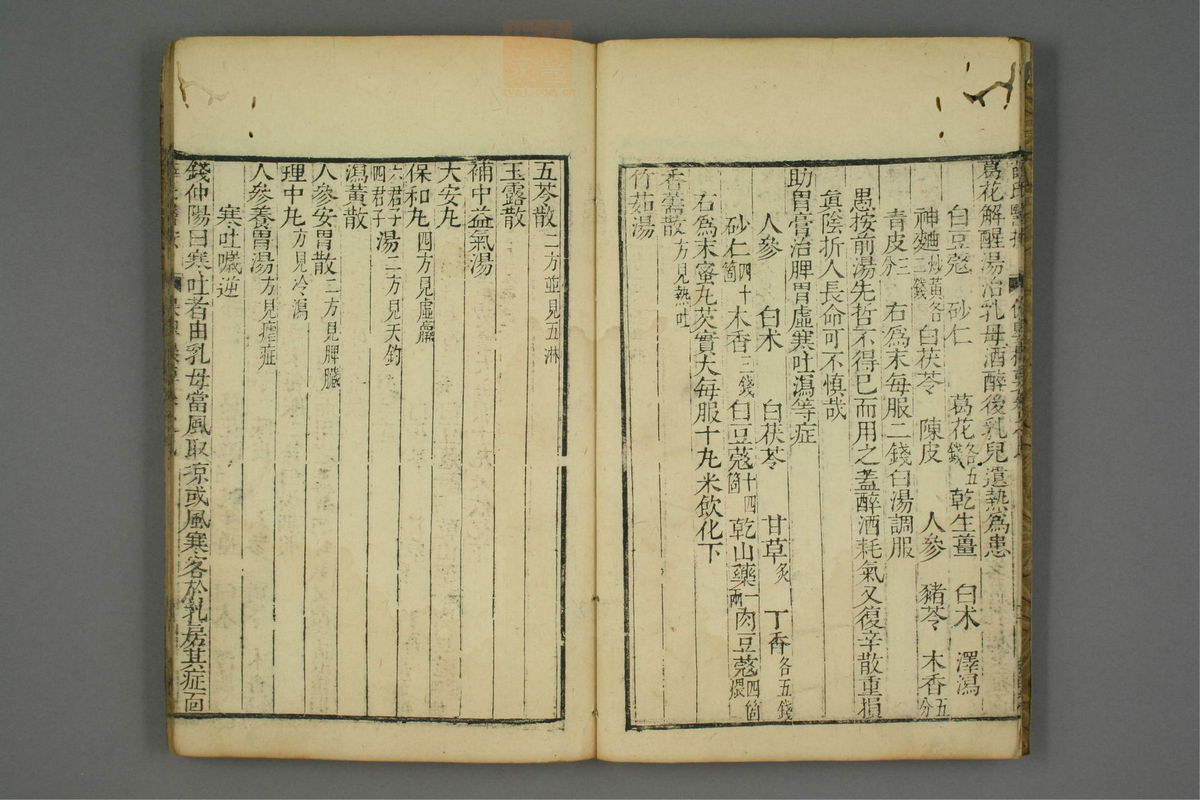 葛花解醒湯治乳母酒醉後乳兒遺熱爲患
白豆蔻 砂仁 葛花各五錢 乾生薑 白术 澤瀉
神麯炒黃各二錢 白茯苓 陳皮 人參 豬苓 木香五分
青皮三分 右爲末每服二錢白湯調服
愚按前湯先哲不得已而用之蓋醉酒耗氣又復辛散重損
眞陰折人長命可不慎哉
助胃膏治脾胃虛寒吐瀉等症
人參 白术 白茯苓 甘草炙 丁香各五錢
砂仁四十箇 木香三錢 白豆蔻十四箇 乾山藥一兩 肉豆蔻四箇煨
右爲末蜜丸芡實大每服十丸米飲化下
香薷散方見熱吐
竹茹湯
五苓散二方並見五淋
玉露散
補中益氣湯
大安丸
保和丸四方見虛羸
六君子四君子湯二方見天釣
瀉黃散
人參安胃散二方見脾臟
理中丸方見冷瀉
人參養胃湯方見瘧症
寒吐嘰逆
錢仲陽曰寒吐者由乳母當風取涼或風寒客於乳房其症面